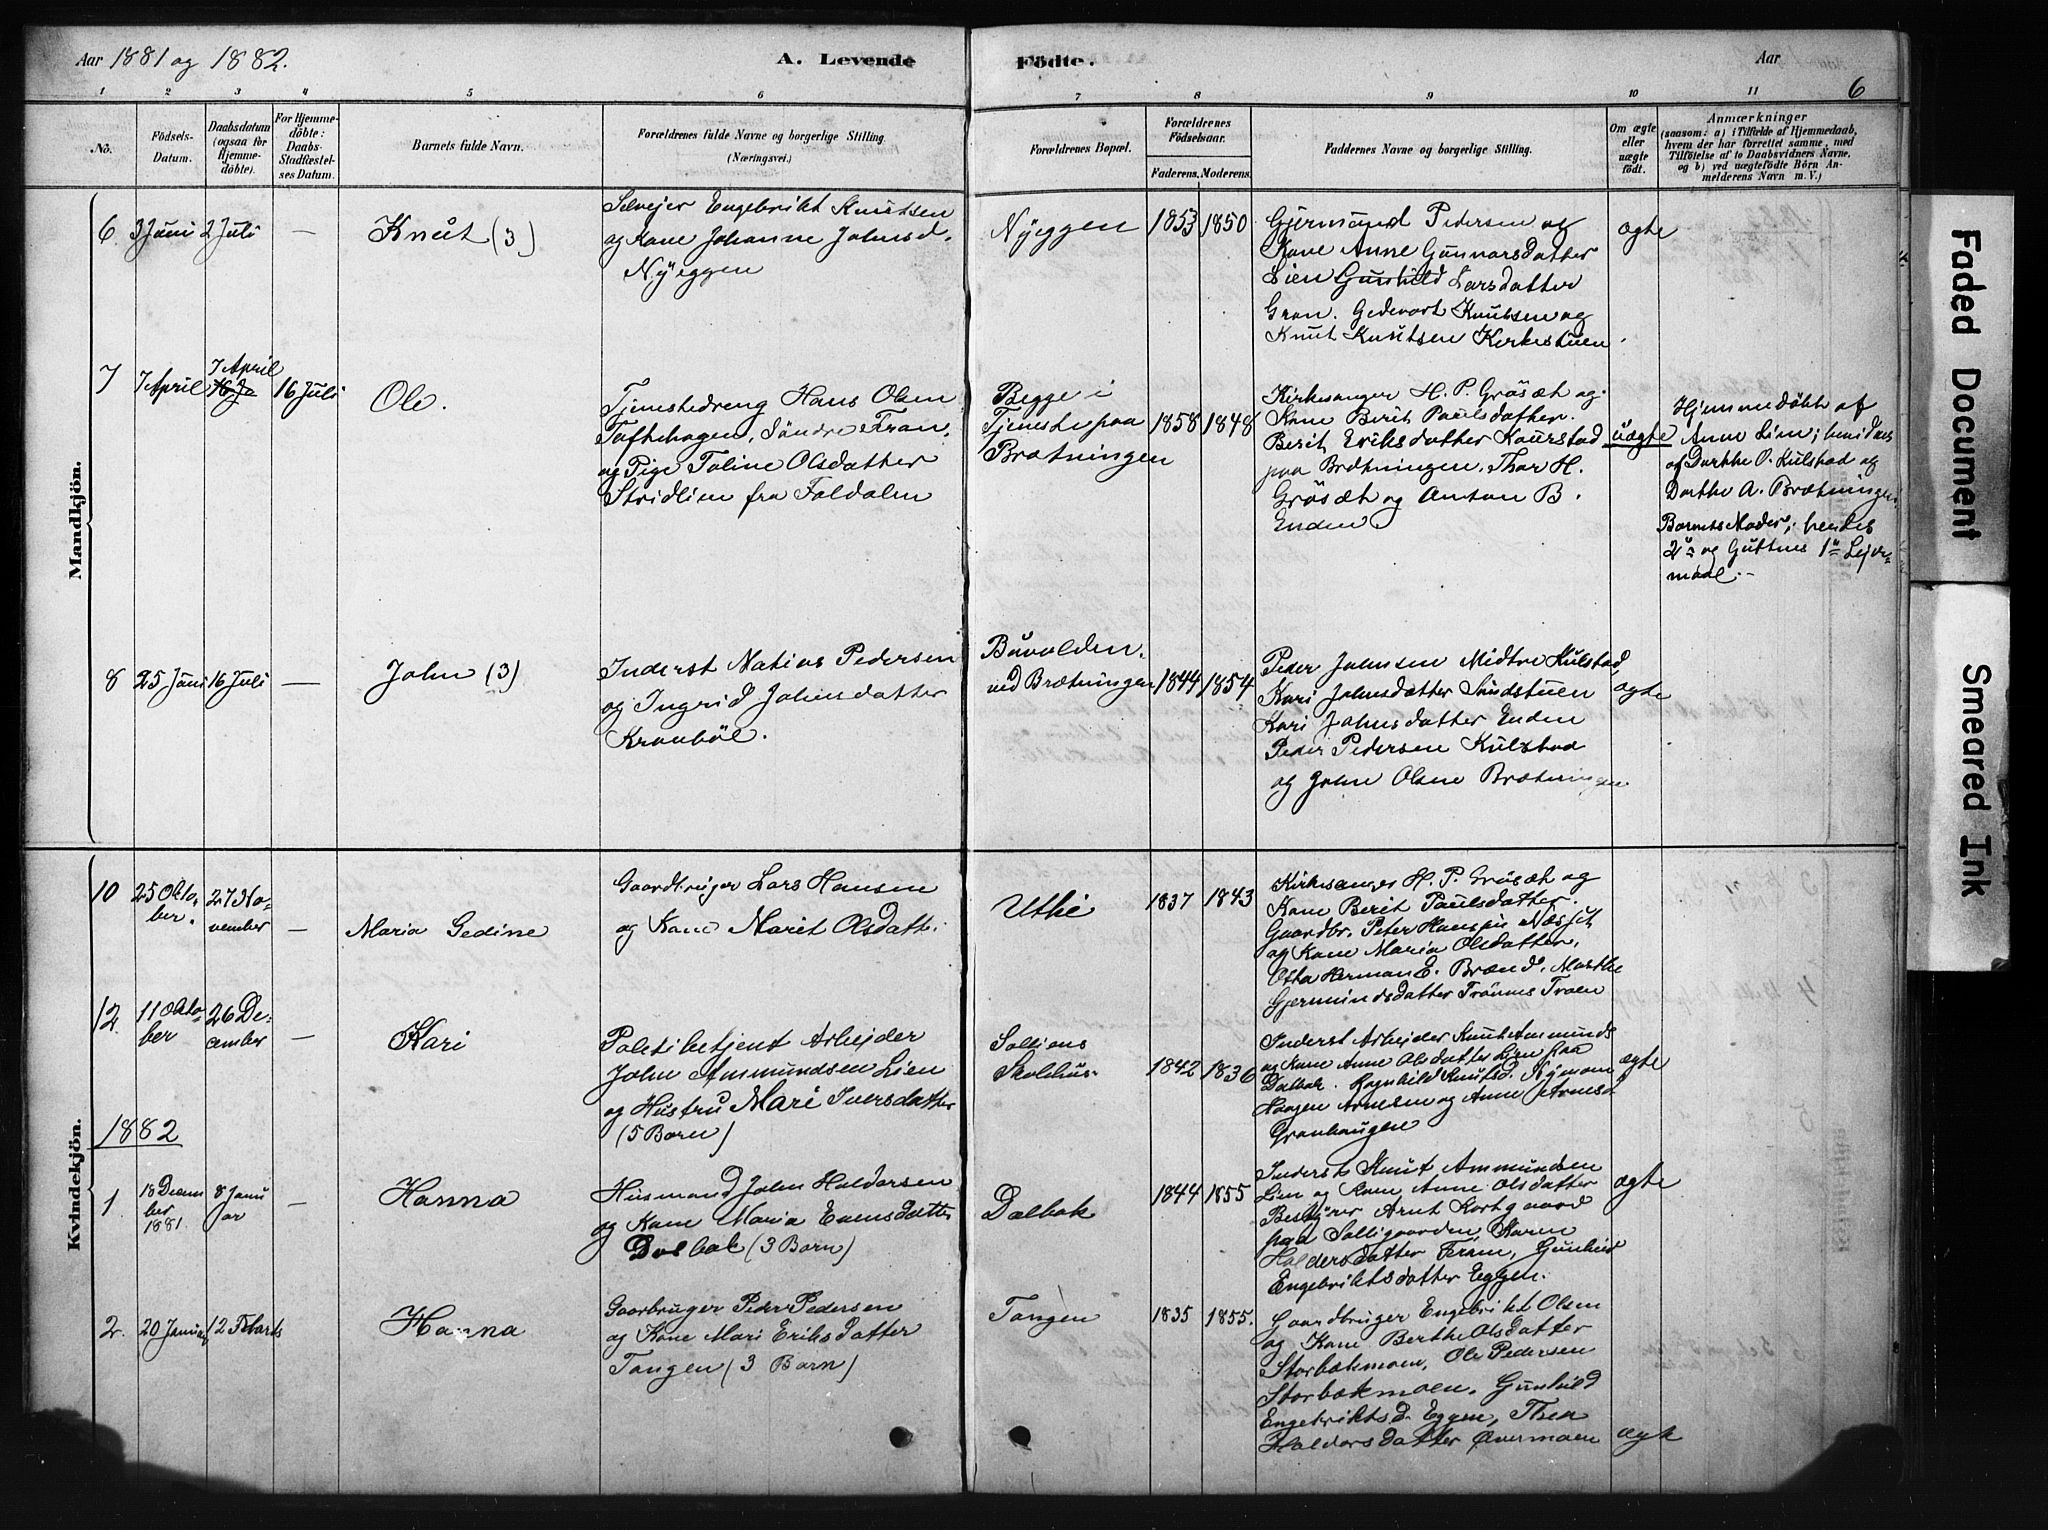 Aar 1881 og 1882.
A. Levende Födte.
Aar
6
1 2 3 4 5 6 7 8 9 10 11
No.
Födsels-Datum.
Daabsdatum (ogsaa for Hjemmedöbte).
For Hjemmedöbte: Daabs-Stadfæstelses Datum.
Barnets fulde Navn.
Forældrenes fulde Navne og borgerlige Stilling.
(Næringsvei.)
Forældrenes Bopæl.
Forældrenes Födselsaar.
Faderens. Moderens.
Faddernes Navne og borgerlige Stilling.
Om ægte eller uægte födt.
Anmærkninger
(saasom: a) i Tilfælde af Hjemmedaab, hvem der har forrettet samme, med Tilföielse af to Daabsvidners Navne, og b) ved uægtefödte Börn Anmelderens Navn m. V.)
Mandkjön.
6. 3 Juni 2 Juli — Knut (3)
Selvejer Engebrikt Knutsen
og Kone Johanne Johnsd.
Nyeggen
Nyeggen 1853 1850
Gjermund Pedersen og
Kone Anne Gunnarsdatter
Lien Gunhild Larsdatter
Gran. Gedevart Knutsen og
Knut Knutsen Kirkestuen.
ægte
7 7 April 7 April 16 Juli Ole.
Tjenestedreng Hans Olsen
Toftehagen, Söndre Fron,
og Pige Toline Olsdatter
Stridlien fra Foldalen
Begge i
Tjeneste paa
Brætningen
1858 1848
Kirkesanger H. P. Gröset og
Kone Berit Paulsdatter.
Berit Eriksdatter Kaurstad
paa Brætningen. Thor H.
Gröset og Anton B.
Enden
uægte
Hjemmedöbt af
Anne Lien; bevidnet
af Dorthe O. Kulstad og
Dorthe A. Brætningen
Barnets Moder; hendes
2det og Guttens 1ste Lejer=
maal.—
8 25 Juni 16 Juli — John (3)
Inderst Matias Pedersen
og Ingrid Johnsdatter
Kronböl.
Buvolden
ved Brætningen
1844 1854
Peder Johnsen Midtre Kulstad,
Kari Johnsdatter Sundstuen
Kari Johnsdatter Enden
Peder Pedersen Kulstad
og John Olsen Brætningen
ægte
Kvindekjön.
10 25 Okto=ber. 27 No=vember — Maria Gedine
Gaardbruger Lars Hansen
og Kone Marit Olsdatt.
Uthi 1837 1843
Kirkesanger H. P. Gröset og
Kone Berit Paulsdatter.
Gaardbr. Peter Hansen Næsset
og Kone Maria Olsdatter.
Otto Herman E. Brænd. Marthe
Gjermundsdatter Trönnes Troen
12. 11 Okto=ber 26 De=cember — Kari
Politibetjent Arbejder
John Ammundsen Lien
og Hustru Mari Iversdatter
(5 Børn)
Solliens
Skolehus.
1842 1836
Inderst Arbejder Knut Ammunds
og Kone Anne Olsdatter Lien paa
Dalbak. Ragnhild Knutsd. Nymoen
Haagen Arnesen og Anne Arnesd
Granhaugen
ægte
1882
1. 18 Decem ber 1881. 8 Janu ar — Hanna
Husmand John Haldorsen
og Kone Maria Evensdatter
Dalbak (3 Børn)
Dalbak
1844 1855
Inderst Knut Ammundsen
Lien og Kone Anne Olsdatter
Bestyrer Arnt Kortgaard
paa Solligaarden, Karen
Haldorsdatter Feram, Gunhild
Engebriktsdatter Eggen.
ægte
2. 20 Januar 12 Marts Hanna
Gaarbruger Peder Pedersen
og Kone Mari Eriksdatter
Tangen (3 Børn)
Tangen 1835 1855.
Gaardbruger Engebrikt Olsen
og Kone Berthe Olsdatter
Storbækmoen, Ole Pedersen
Storbækmoen. Gunhild
Engebriktsd. Eggen, Thea
Haldorsdatter Overmoen
ægte
Faded Document
Smeared Ink